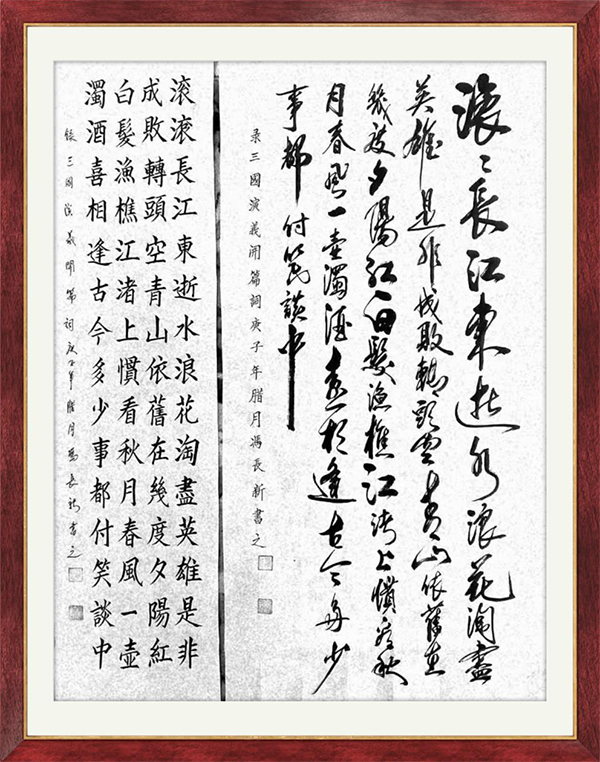 滚〻長江東逝水浪花淘盡
英雄是非成敗轉頭空青山依舊在
幾度夕陽紅白髮漁樵江渚上慣看秋
月春風一壺濁酒喜相逢古今多少
事都付笑談中
录三國演義開篇詞庚子年腊月馮長新書之
滚滚長江東逝水浪花淘盡英雄是非
成敗轉頭空青山依舊在幾度夕陽紅
白髮漁樵江渚上慣看秋月春風一壺
濁酒喜相逢古今多少事都付笑談中
錄三國演義開篇詞庚子年腊月馮長新書之